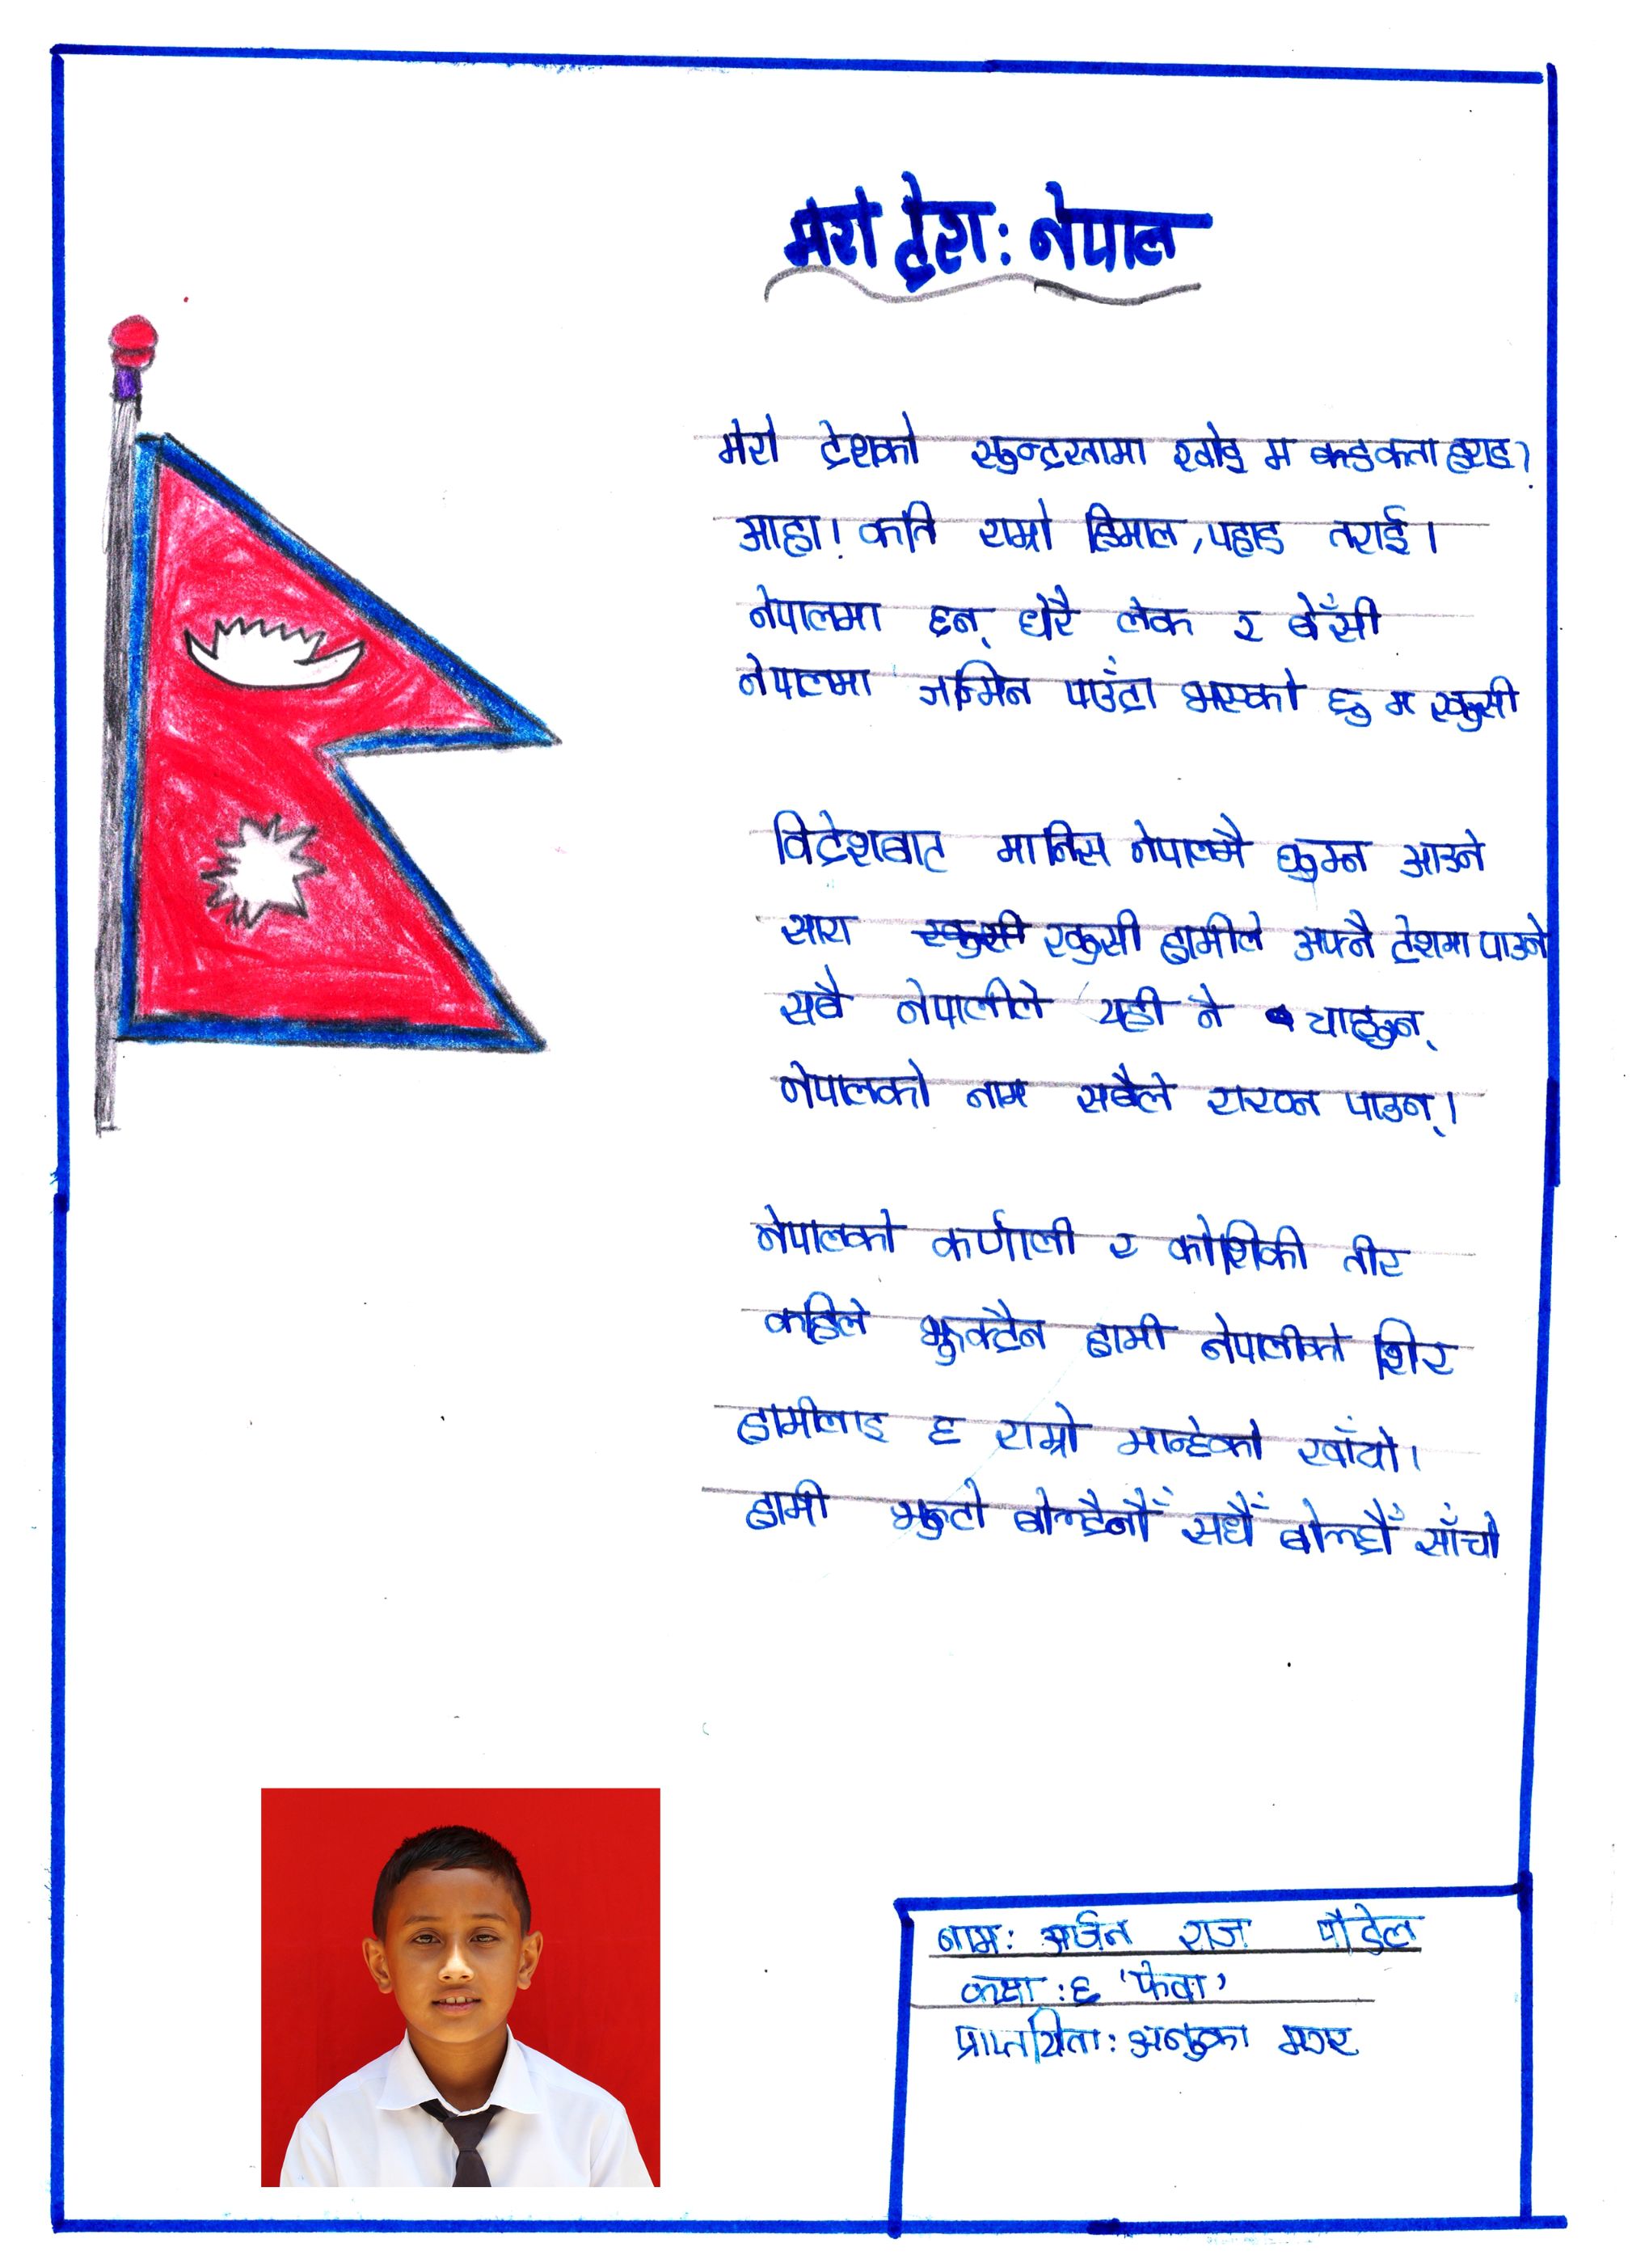 मेरो देश: नेपाल
मेरो देशको सुन्दरतामा खोइ म कहाँ हराइ?
आहा! कति राम्रो हिमाल, पहाड तराई।
नेपालमा छन् धेरै लेक र बेँसी
नेपालमा जन्मिन पाउँदा भएको छु म खुसी
विदेशबाट मानिस नेपालमै घुम्न आउने
सारा खुसी खुसी हामीले अफ्नै देशमा पाउने
सबै नेपालीले यही नै चाहुन्
नेपालको नाम सबैले राख्न पाउन्।
नेपालको कर्णाली र कोशिकी तीर
कहिले झुक्दैन हामी नेपालीको शिर
हामीलाइ छ राम्रो मान्छेको खाँचो।
हामी झुटो बोल्दैनौँ सधैँ बोल्छौँ साँचो
नाम: राज पौडेल
कक्षा: ६ 'फेवा'